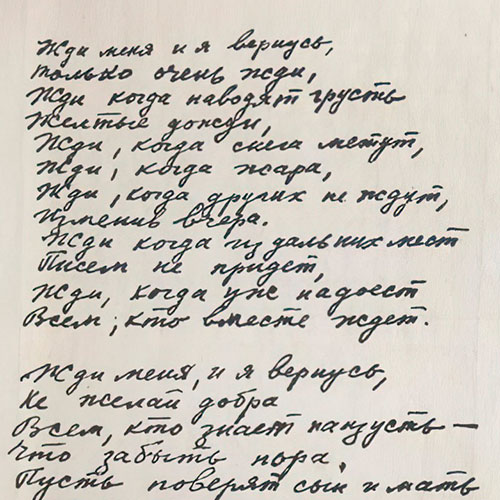 Жди меня и я вернусь,
только очень жди,
Жди когда наводят грусть
Желтые дожди,
Жди, когда снега метут,
Жди, когда жара,
Жди, когда других не ждут,
Изменив вчера.
Жди когда из дальних мест
Писем не придет,
Жди, когда уж надоест
Всем, кто вместе ждет.
Жди меня, и я вернусь,
Не желай добра
Всем, кто знает наизусть —
Что забыть пора.
Пусть поверят сын и мать